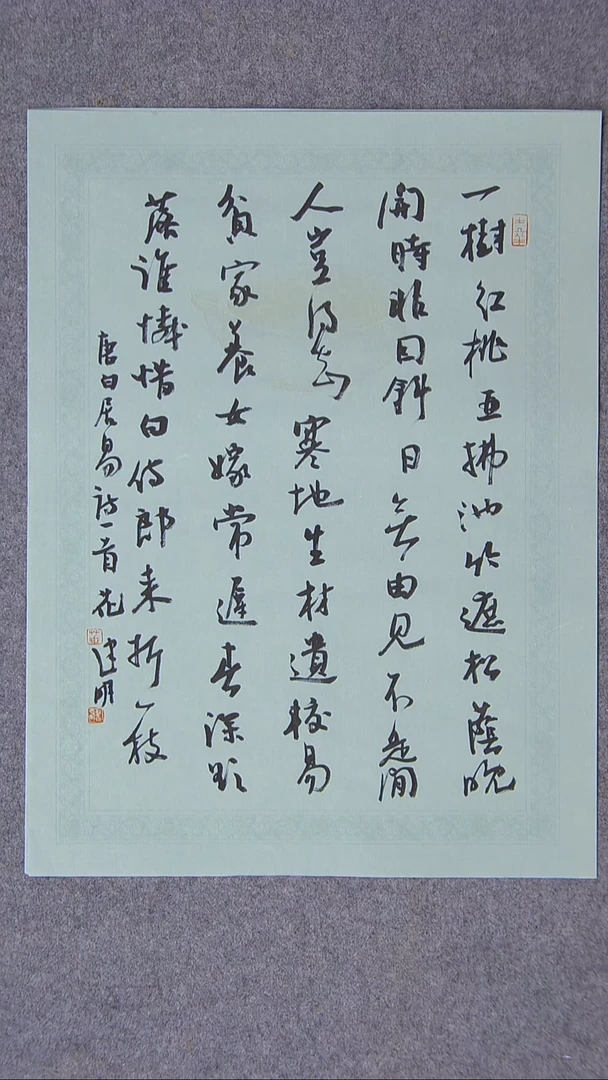 一樹紅桃亞拂池竹遮松蔭晚
開時非因斜日无由見不是閒
人豈得知寒地生材遺校易
貧家養女嫁常遲春深欲
落誰憐惜白侍郎来折一枝
唐白居易詩一首花建明